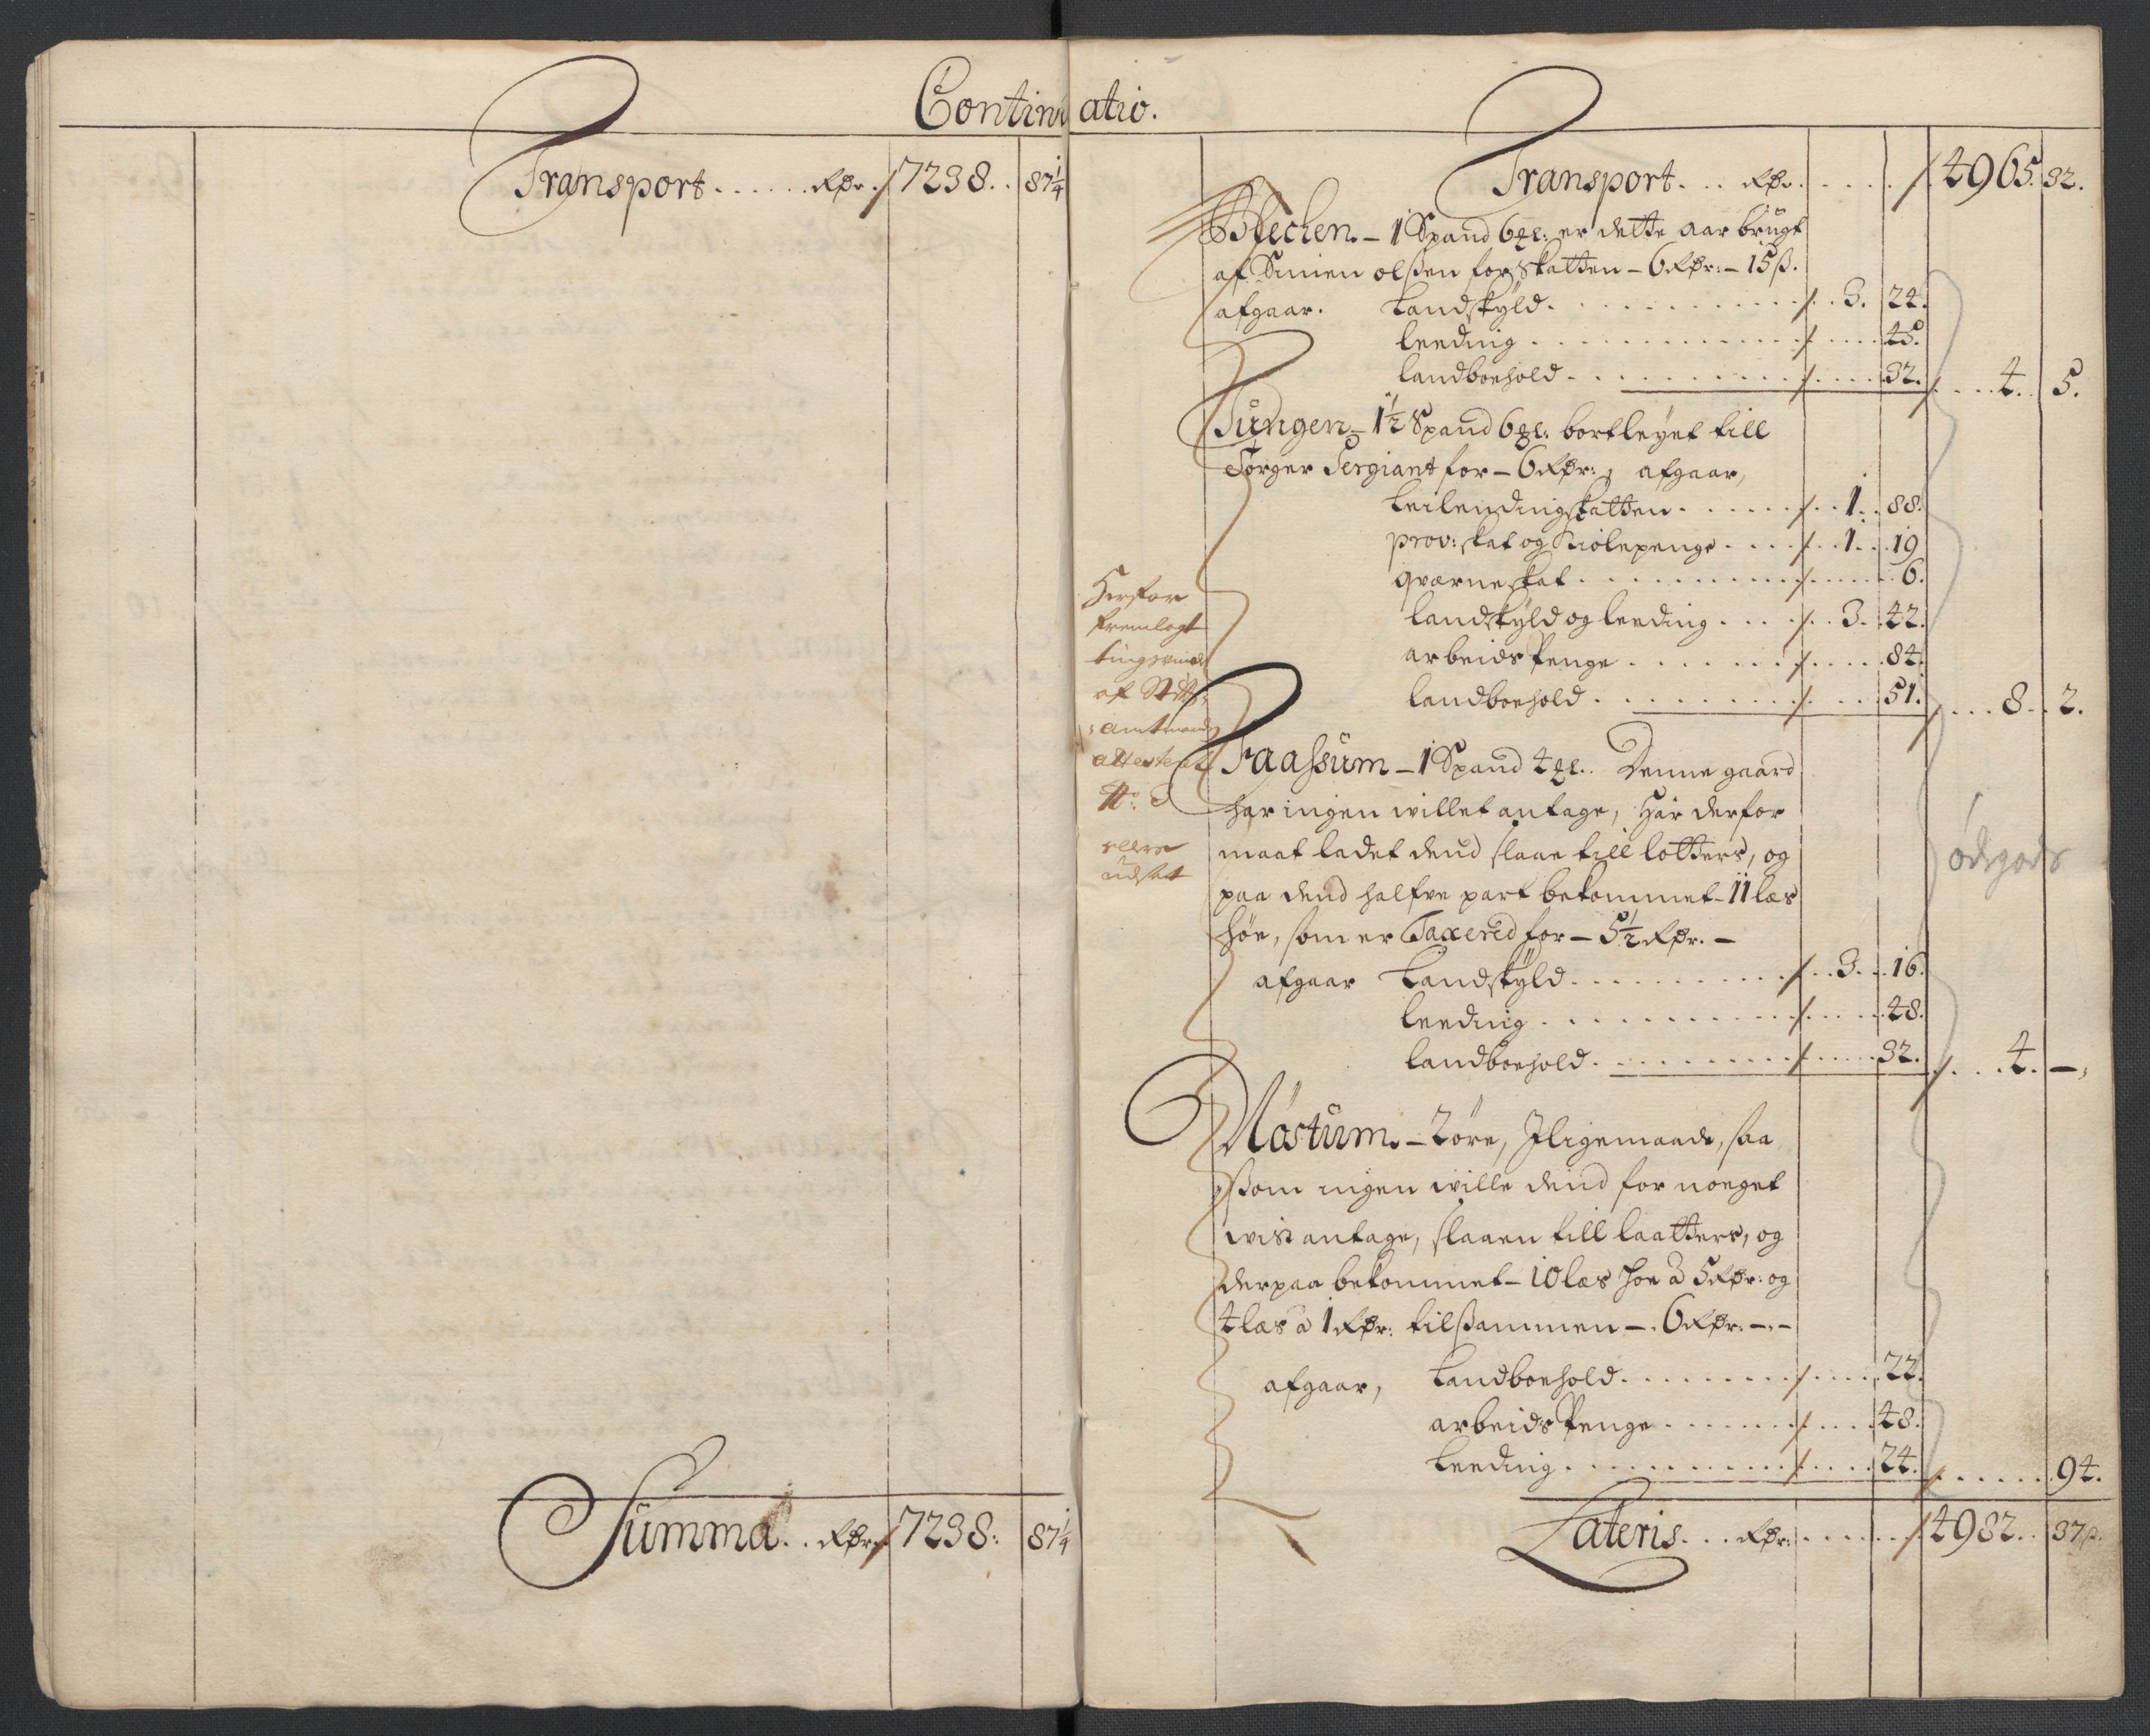 Continuatio.
Transport ...... Rdr. / 7238. 87¼
Summa .. Rdr. / 7238: 87¼
Transport ... Rdr. ..... / 4965. 32.
1 Spand 6 ℔l: er dette aar brugt
af Simen olßen for skatten – 6 Rdr: – 15 ß.
afgaar. Landskyld ........ / .. 3. 24.
leeding ........ / .... 45.
landboehold ........ / .... 32. / ... 4. 5.
1½ Spand 6 ℔l: bortleyet till
Sergiant for – 6 Rdr: , afgaar,
Leilendingskatten ...... / .. 1. 88.
prov: skat og Kiolepenge .... / .. 1. 19
qværneskat ........ / .... 6.
landskyld og leeding .... / .. 3. 42.
arbeids Penge ...... / .... 84.
landboehold ........ / .... 51. / ... 8. 2.
Herfor
fremlagt
tingsvinde
af Stift:
amtmand
attesteret
No:
ellers
udsat
Faaßum – 1 Spand 4 ℔l. Denne gaard
har ingen willet antage, Har derfor
maat ladet dend slaae till lotters, og
paa dend halfve part bekommet – 11 læs
høe, som er Taxered for – 5½ Rdr. –
afgaar Landskyld ........ / .. 3. 16.
leeding ........ / .... 48.
landboehold ........ / .... 32. / ... 4. –,
ødegods
Møstum. – 2 øre, Iligemaade, saa
ßom ingen wille dend for noeget
wist antage, slaaen till laatters, og
derpaa bekommet – 10 læs høe a 5 Rdr: og
4 læs a 1 Rdr: tilßammen – . 6 Rdr. –.–
afgaar, Landboehold ........ / .... 22.
arbeids Penge ...... / .... 48.
Leeding ........ / .... 24. / ..... 94.
Lateris ... Rdr: ..... / 4982. 37 ß.